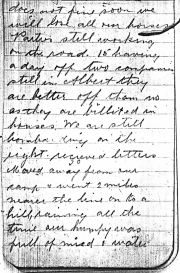 does not fine soon we
will lose all our horses
Parties still working
on the road. 15 having
a day off two companies
still in Albert they
are better off than us
as they are billeted in
houses. We are still
bombarding on the
right. received letters
Moved away from our
camp & went 2 miles
nearer the line on to a
hill raining all the
time our humpy was
full of mud & water